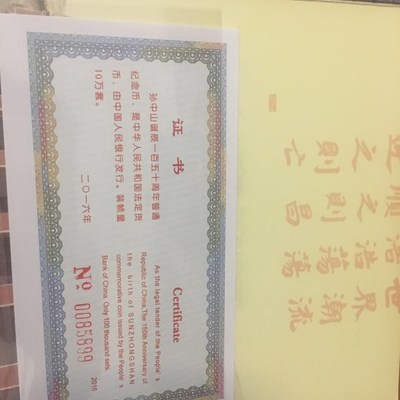 证书
孙中山诞辰一百五十周年普通
纪念币，是中华人民共和国法定货
币，由中国人民银行发行。装帧量
10万套。
二〇一六年
Certificate
As the legal tender of the People's
Republic of China,The 150th Anniversary of
the birth of SUNZHONGSHAN
commemorative coin issued by the People's
Bank of China. Only 100 thousand sets.
2016
No 0085899
世界潮流
浩浩荡荡
顺之则昌
逆之则亡